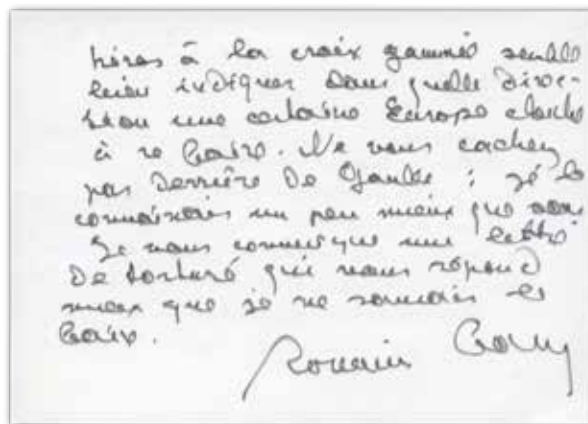 héros à la croix gammée semble
bien indiquer dans quelle direc-
tion une certaine Europe cherche
à se faire. Ne vous cachez
pas derrière De Gaulle : je le
connaissais un peu mieux que vous
Je vous communique une lettre
De torturé qui vous répond
mieux que je ne saurais le
faire.
Romain Gary